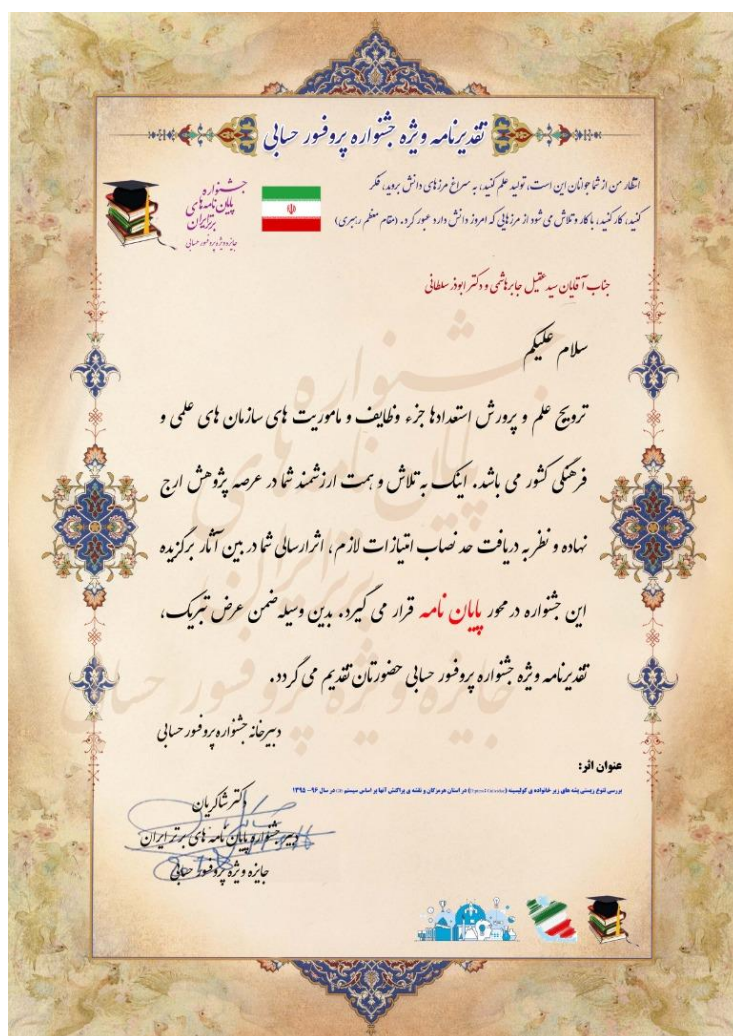 تقدیرنامه ویژه جشنواره پروفسور حسابی
انتظار من از شما جوانان این است، تولید علم کنید، به سراغ مرزهای دانش بروید، فکر
کنید، کار کنید، با کار و تلاش می شود از مرزهایی که امروز دانش دارد عبور کرد. (مقام معظم رهبری)
جشنواره
پایان نامه‌های
برتر ایران
جایزه ویژه پروفسور حسابی
جناب آقایان سید عقیل جابر هاشمی و دکتر ابوذر سلطانی
سلام علیکم
ترویج علم و پرورش استعدادها جزء وظایف و ماموریت های سازمان های علمی و
فرهنگی کشور می باشد. اینک به تلاش و همت ارزشمند شما در عرصه پژوهش ارج
نهاده و نظر به دریافت حد نصاب امتیازات لازم، اثر ارسالی شما در بین آثار برگزیده
این جشنواره در محور پایان نامه قرار می گیرد. بدین وسیله ضمن عرض تبریک،
تقدیرنامه ویژه جشنواره پروفسور حسابی حضورتان تقدیم می گردد.
دبیرخانه جشنواره پروفسور حسابی
عنوان اثر:
بررسی تنوع زیستی پشه های زیر خانواده ی کولیسینه در استان هرمزگان و نقشه ی پراکنش آنها بر اساس سیستم در سال ۹۶- ۱۳۹۵
دکتر شاکریان
دبیر جشنواره پایان نامه های برتر ایران
جایزه ویژه پروفسور حسابی
جشنواره
پایان نامه های
برتر ایران
جایزه ویژه پروفسور حسابی